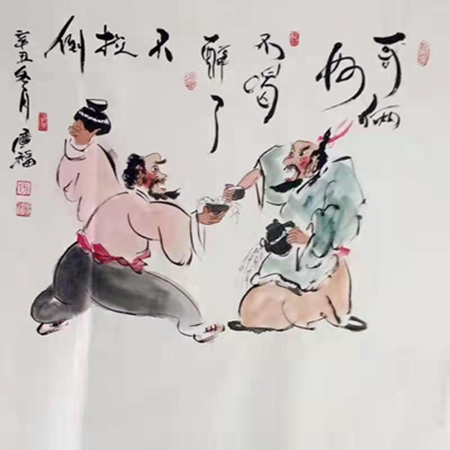 哥俩
好
不喝
醉了
不
拉
倒
辛丑冬月
廣福